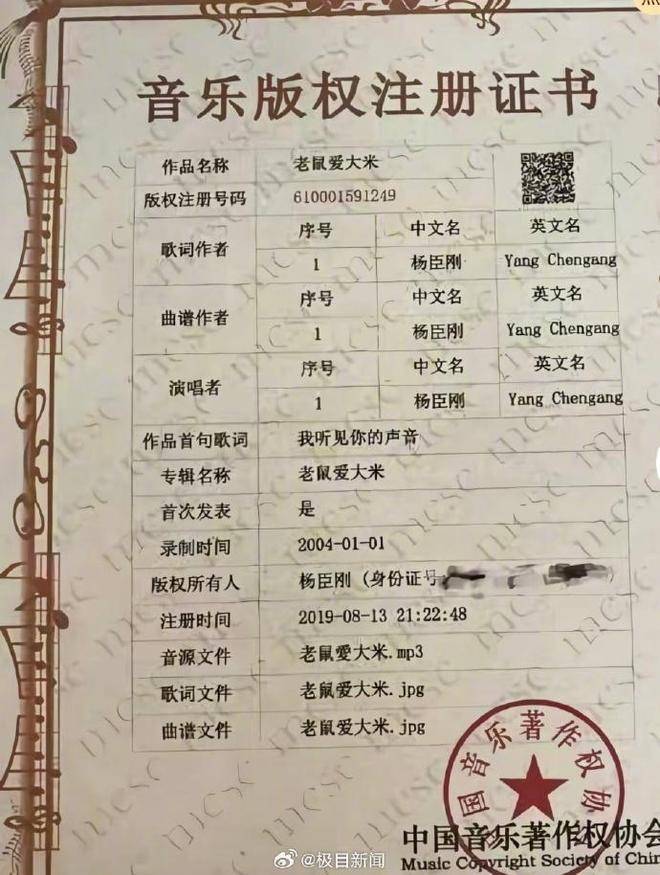 音乐版权注册证书
作品名称 老鼠爱大米
版权注册号码 610001591249
歌词作者 序号 中文名 英文名
1 杨臣刚 Yang Chengang
曲谱作者 序号 中文名 英文名
1 杨臣刚 Yang Chengang
演唱者 序号 中文名 英文名
1 杨臣刚 Yang Chengang
作品首句歌词 我听见你的声音
专辑名称 老鼠爱大米
首次发表 是
录制时间 2004-01-01
版权所有人 杨臣刚(身份证号
注册时间 2019-08-13 21:22:48
音源文件 老鼠愛大米.mp3
歌词文件 老鼠愛大米.jpg
曲谱文件 老鼠愛大米.jpg
国音乐著作权协
中国音乐著作权协会
Music Copyright Society of Chin
@极目新闻
mcsc